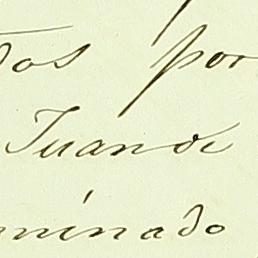 dos por
Juan de
minado